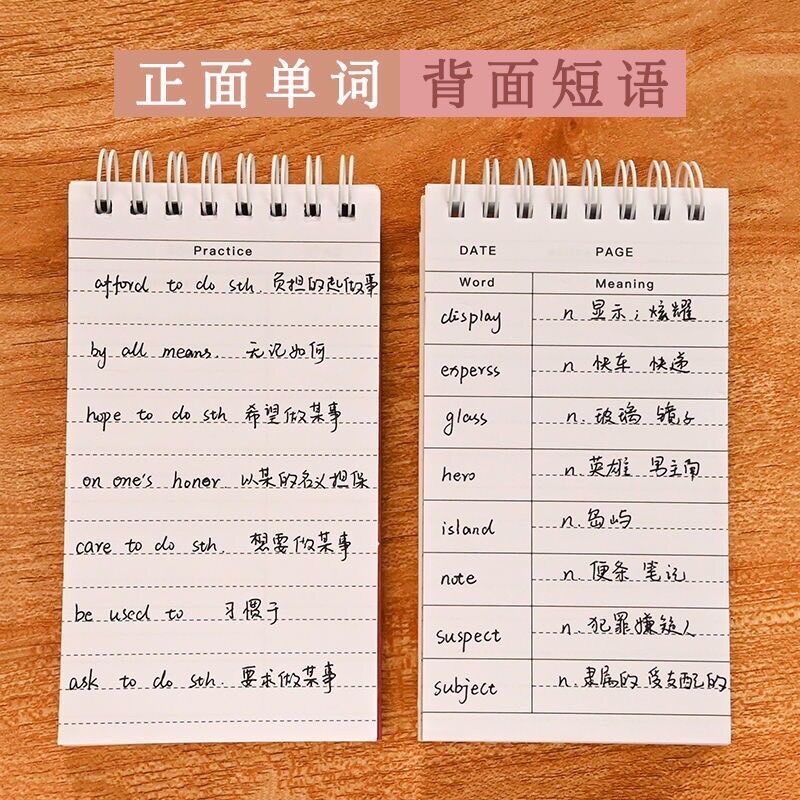 正面单词 背面短语
Practice
afford to do sth. 负担的起做事
by all means. 无论如何
hope to do sth 希望做某事
on one's honor. 以某的名义担保
care to do sth. 想要做某事
be used to 习惯于
ask to do sth. 要求做某事
DATE PAGE
Word Meaning
display n. 显示；炫耀
experss n. 快车 快递
glass n. 玻璃 镜子
hero n. 英雄 男主角
island n. 岛屿
note n. 便条 笔记
suspect n. 犯罪嫌疑人
subject n. 隶属的 受支配的